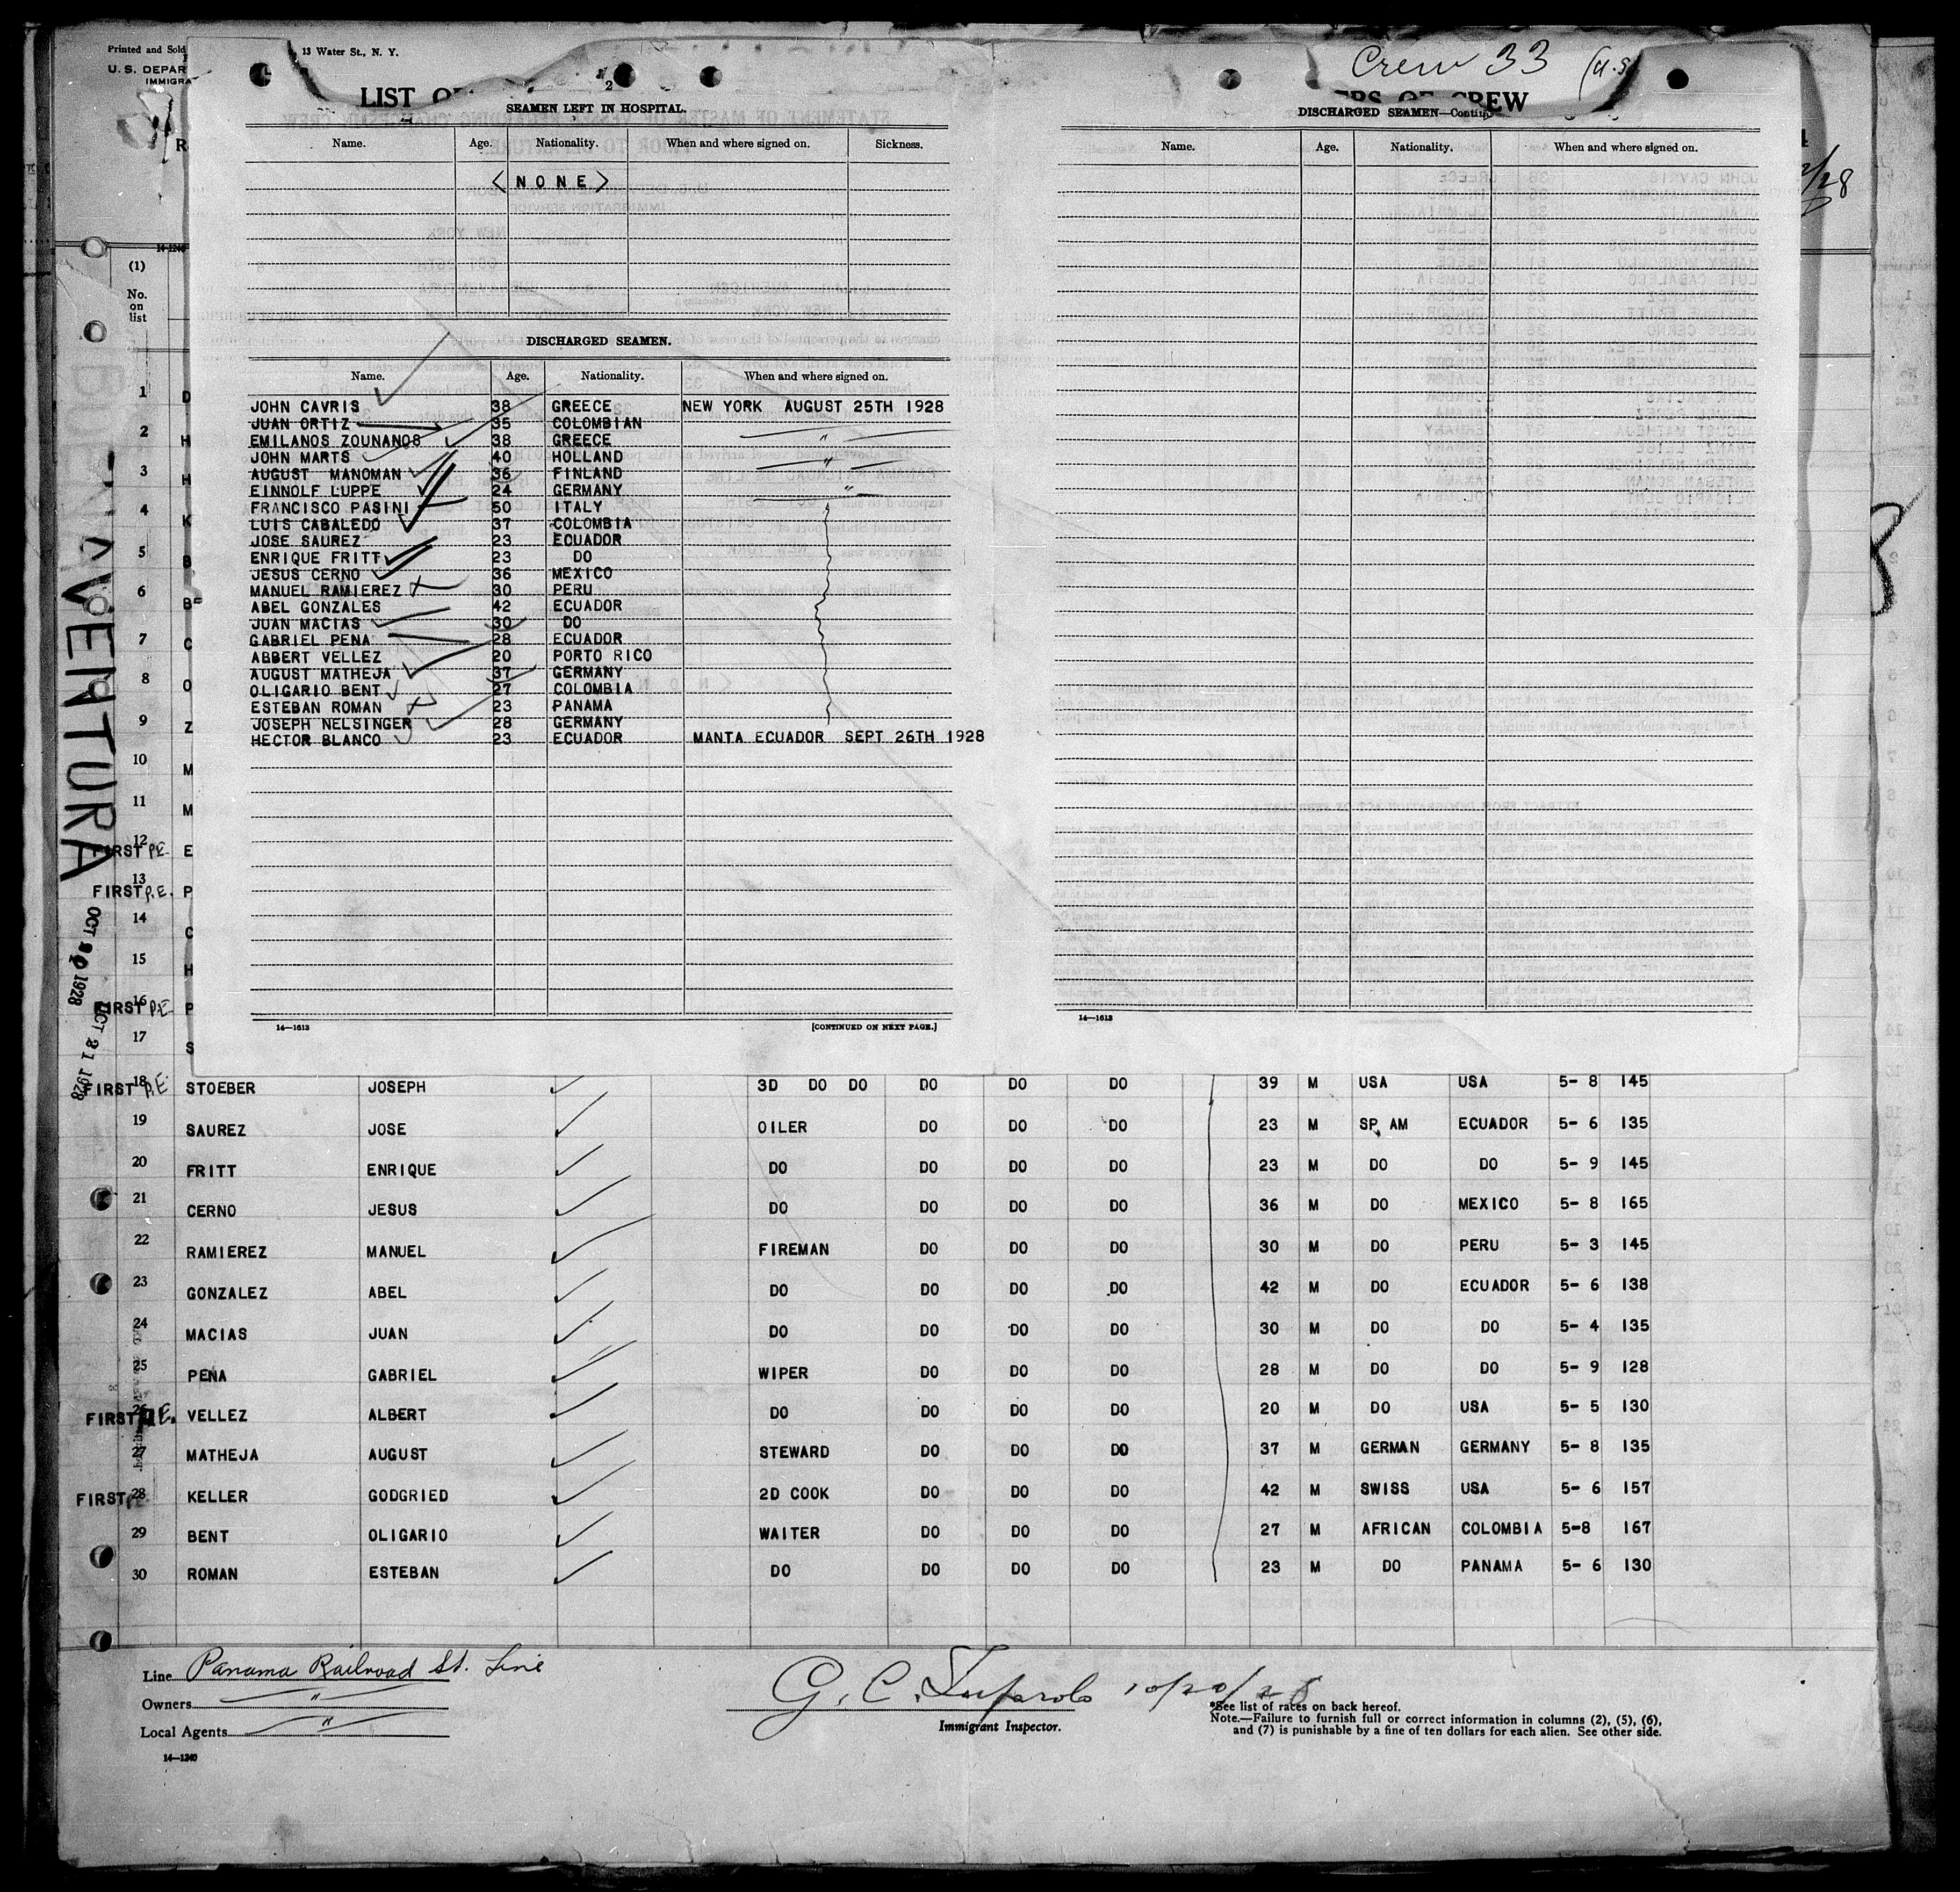 Printed and Sold
13 Water St., N. Y.
U. S. DEPAR
IMMIGRA
LIST O
Crew 33 (U.S
ERS OF CREW
SEAMEN LEFT IN HOSPITAL.
Name. Age. Nationality. When and where signed on. Sickness.
<NONE>
DISCHARGED SEAMEN.
Name. Age. Nationality. When and where signed on.
JOHN CAVRIS 38 GREECE NEW YORK AUGUST 25TH 1928
JUAN ORTIZ 35 COLOMBIAN
EMILANOS ZOUNANOS 38 GREECE "
JOHN MARTS 40 HOLLAND
AUGUST MANOMAN 36 FINLAND "
EINNOLF LUPPE 24 GERMANY
FRANCISCO PASINI 50 ITALY "
LUIS CABALEDO 37 COLOMBIA
JOSE SAUREZ 23 ECUADOR
ENRIQUE FRITT 23 DO
JESUS CERNO 36 MEXICO
MANUEL RAMIEREZ 30 PERU
ABEL GONZALES 42 ECUADOR
JUAN MACIAS 30 DO
GABRIEL PENA 28 ECUADOR
ABBERT VELLEZ 20 PORTO RICO
AUGUST MATHEJA 37 GERMANY
OLIGARIO BENT 27 COLOMBIA
ESTEBAN ROMAN 23 PANAMA
JOSEPH NELSINGER 28 GERMANY
HECTOR BLANCO 23 ECUADOR MANTA ECUADOR SEPT 26TH 1928
14—1613
[CONTINUED ON NEXT PAGE.]
DISCHARGED SEAMEN—Contin
Name. Age. Nationality. When and where signed on.
14—1613
14-1240
(1)
No. on list
1 D
2 H
3 H
4 K
5 B
6 BE
7 C
8 O
9 Z
10 M
11 M
FIRST P.E. 12 E
FIRST P.E. 13 P
14 C
15 H
FIRST P.E. 16 P
17 S
VENTURA
OCT 20 1928
OCT 21 1928
FIRST P.E. 18 STOEBER JOSEPH 3D DO DO DO DO DO 39 M USA USA 5- 8 145
19 SAUREZ JOSE OILER DO DO DO 23 M SP. AM ECUADOR 5- 6 135
20 FRITT ENRIQUE DO DO DO DO 23 M DO DO 5- 9 145
21 CERNO JESUS DO DO DO DO 36 M DO MEXICO 5- 8 165
22 RAMIEREZ MANUEL FIREMAN DO DO DO 30 M DO PERU 5- 3 145
23 GONZALEZ ABEL DO DO DO DO 42 M DO ECUADOR 5- 6 138
24 MACIAS JUAN DO DO DO DO 30 M DO DO 5- 4 135
25 PENA GABRIEL WIPER DO DO DO 28 M DO DO 5- 9 128
FIRST P.E. 26 VELLEZ ALBERT DO DO DO DO 20 M DO USA 5- 5 130
27 MATHEJA AUGUST STEWARD DO DO DO 37 M GERMAN GERMANY 5- 8 135
FIRST 28 KELLER GODGRIED 2D COOK DO DO DO 42 M SWISS USA 5- 6 157
29 BENT OLIGARIO WAITER DO DO DO 27 M AFRICAN COLOMBIA 5-8 167
30 ROMAN ESTEBAN DO DO DO DO 23 M DO PANAMA 5- 6 130
Line Panama Railroad St. Line
Owners "
Local Agents "
14—1240
G. C. 10/20/28
Immigrant Inspector.
*See list of races on back hereof.
Note.—Failure to furnish full or correct information in columns (2), (5), (6),
and (7) is punishable by a fine of ten dollars for each alien. See other side.